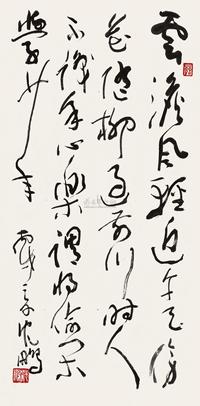 雲澹風輕近午天傍
花隨柳過前川時人
不識余心樂謂將偷閑
學少年 沈鵬